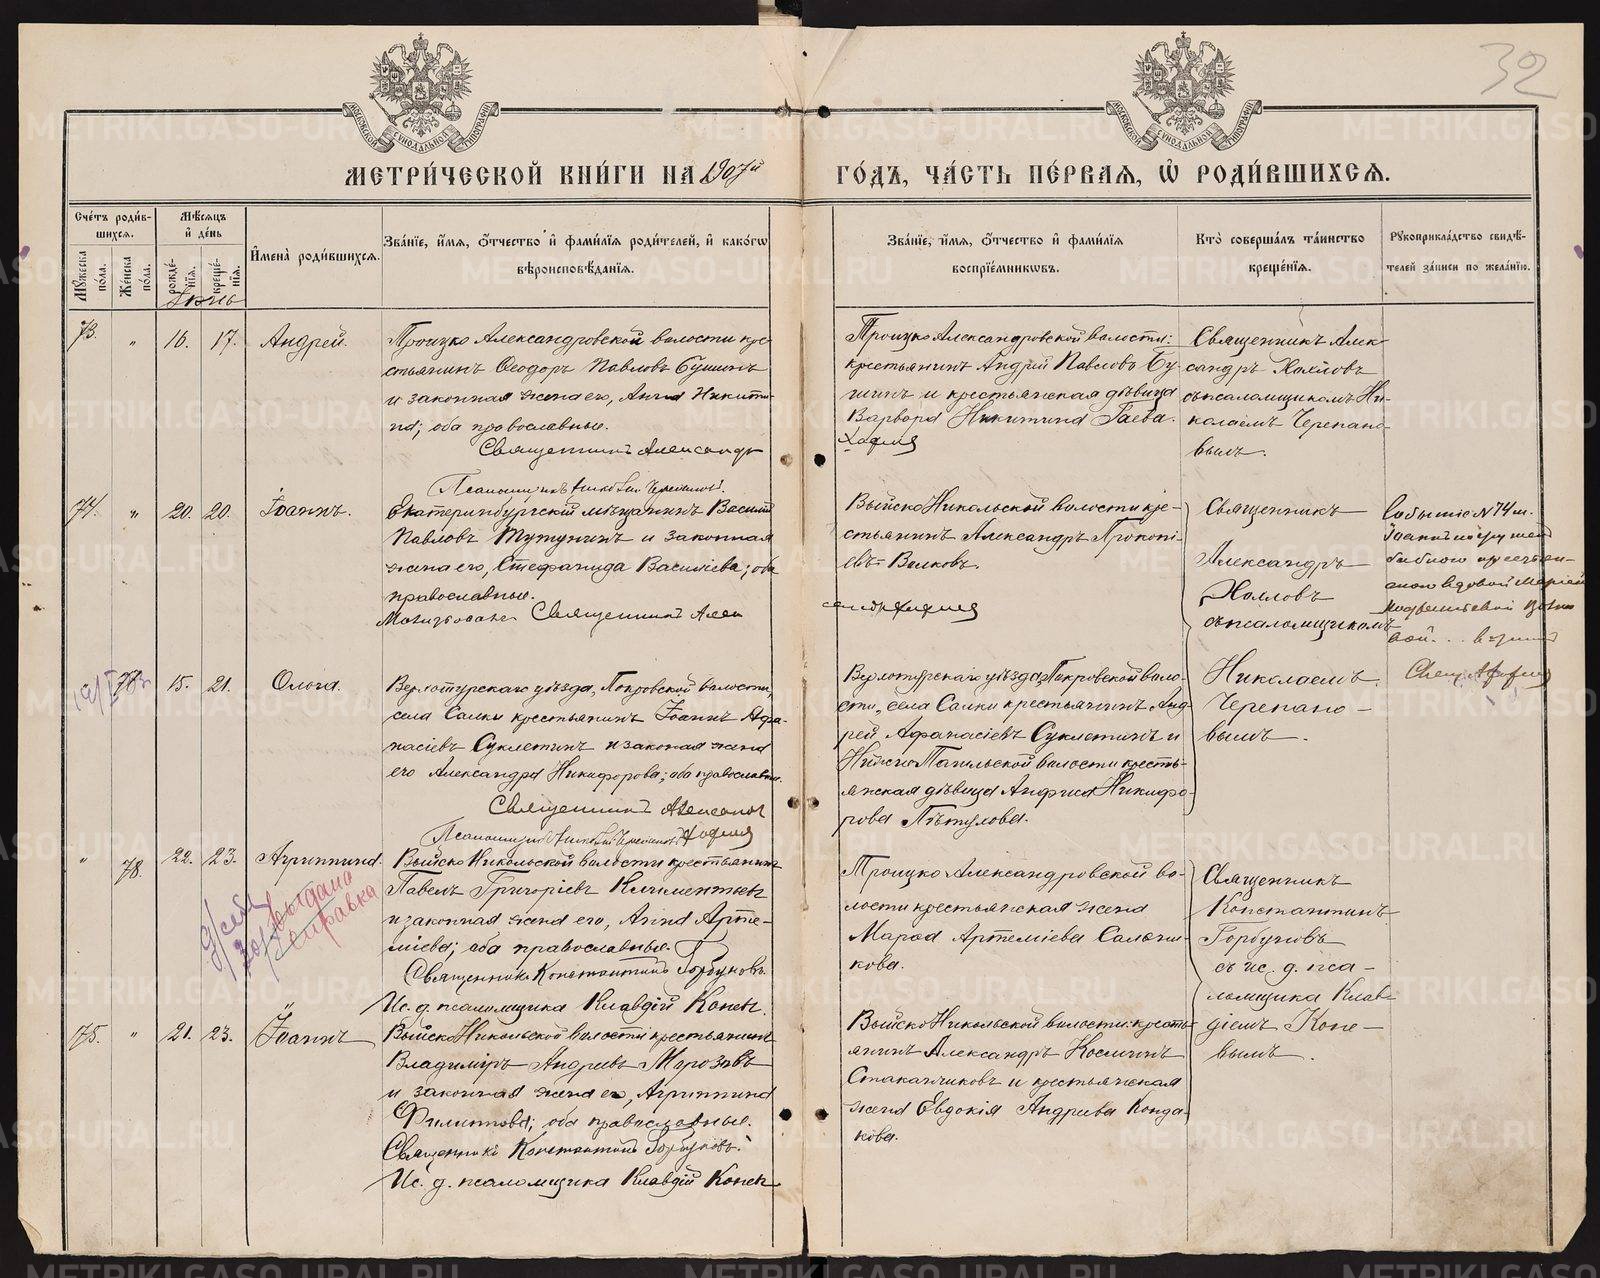 32
МЕТРИ́ЧЕСКОЙ КНИ́ГИ НА 1907й ГО́ДЪ, ЧА́СТЬ ПЕ́РВАЯ, Ѡ҆ РОДИ́ВШИХСѦ.
Сче́тъ роди́в-
шихся.
Мꙋ́жеска по́ла.
Же́нска по́ла.
Мѣ́сяцъ
и҆ де́нь
рожде́-
нїѧ.
креще́-
нїѧ.
Іюнь
И҆мена̀ роди́вшихсѧ.
Зва́нїе, и҆́мѧ, ѻ҆́тчество и҆ фами́лїѧ роди́телей, и҆ како́гѡ
вѣроисповѣ́данїѧ.
Зва́нїе, и҆́мѧ, ѻ҆́тчество и҆ фами́лїѧ
воспрїе́мниковъ.
Кто̀ соверша́лъ та́инство
креще́нїѧ.
Рꙋкоприкла́дство свидѣ́-
телей за́писи по жела́нїю.
73. " 16. 17. Андрей.
Троицко Александровской волости кре-
стьянинъ Ѳеодоръ Павловъ Бушинъ
и законная жена его, Анна Никити-
на; оба православные.
Священникъ Александръ
Троицко Александровской волости:
крестьянинъ Андрей Павловъ Бу-
шинъ и крестьянская дѣвица
Варвара Никитина Гаева.
Священникъ Алек-
сандръ Хохловъ
съ псаломщикомъ Ни-
колаемъ Черепано-
вымъ.
74. " 20. 20. Іоаннъ.
Екатеринбургскій мѣщанинъ Василій
Павловъ Тутунинъ и законная
жена его, Стефанида Васильева; оба
православные.
Священникъ Алек
Выйско Никольской волости кре-
стьянинъ Александръ Прокопі-
евъ Волковъ.
Священникъ
Александръ
Хохловъ
съ псаломщикомъ
Николаемъ
Черепано-
вымъ.
Событіе № 74 м.
77. 15. 21. Ольга.
Верхотурскаго уѣзда, Покровской волости,
села Салки крестьянинъ Іоаннъ Афа-
насіевъ Суклетинъ и законная жена
его Александра Никифорова; оба православн.
Священникъ Александръ
Верхотурскаго уѣзда, Покровской воло-
сти, села Салки крестьянинъ Анд-
рей Афанасіевъ Суклетинъ и
Нижно Тагильской волости кресть-
янская дѣвица Анфиса Никифо-
рова Пѣтухова.
" 78. 22. 23. Агриппина.
выдана
справка
Выйско Никольской волости крестьянинъ
Павелъ Григоріевъ Климентьевъ
и законная жена его, Анна Арте-
міева; оба православные.
Священникъ Константинъ Горбуновъ.
Ис. д. псаломщика Клавдій Конев
Троицко Александровской во-
лости крестьянская жена
Марѳа Артеміева Салани-
кова.
Священникъ
Константинъ
Горбуновъ
съ ис. д. пса-
ломщика Клав-
діемъ Коне-
вымъ.
75. " 21. 23. Іоаннъ
Выйско Никольской волости крестьянинъ
Владиміръ Андреевъ Морозовъ
и законная жена его, Агриппина
Филиппова; оба православные.
Священникъ Константинъ Горбуновъ.
Ис. д. псаломщика Клавдій Конев
Выйско Никольской волости: кресть-
янинъ Александръ Космичъ
Стаканчиковъ и крестьянская
жена Евдокія Андреева Конда-
кова.
METRIKI.GASO-URAL.RU